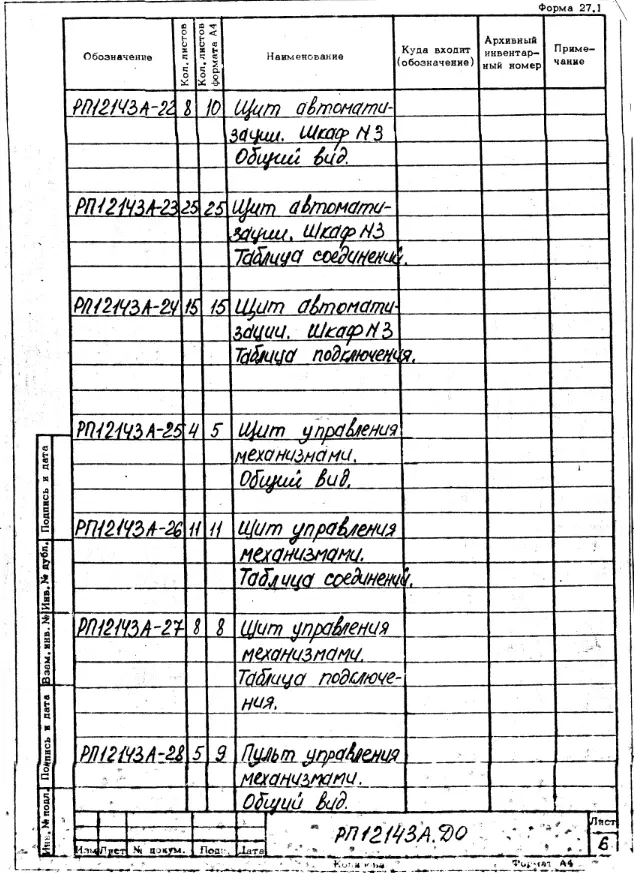 Форма 27.1
Обозначение
Кол. листов
Кол. листов формата А4
Наименование
Куда входит (обозначение)
Архивный инвентарный номер
Примечание
РП12143А-22 8 10 Щит автомати-
зации. Шкаф N3
Общий вид.
РП12143А-23 25 25 Щит автомати-
зации. Шкаф N3
Таблица соединений.
РП12143А-24 15 15 Щит автомати-
зации. Шкаф N3
Таблица подключения.
РП12143А-25 4 5 Щит управления
механизмами.
Общий вид.
РП12143А-26 11 11 Щит управления
механизмами.
Таблица соединений.
РП12143А-27 8 8 Щит управления
механизмами.
Таблица подключе-
ния.
РП12143А-28 5 9 Пульт управления
механизмами.
Общий вид.
Подпись и дата
Инв. № дубл.
Взам. инв. №
Подпись и дата
Инв. № подл.
РП12143А.ДО
Лист
6
Изм Лист № докум. Подп. Дата
Формат А4